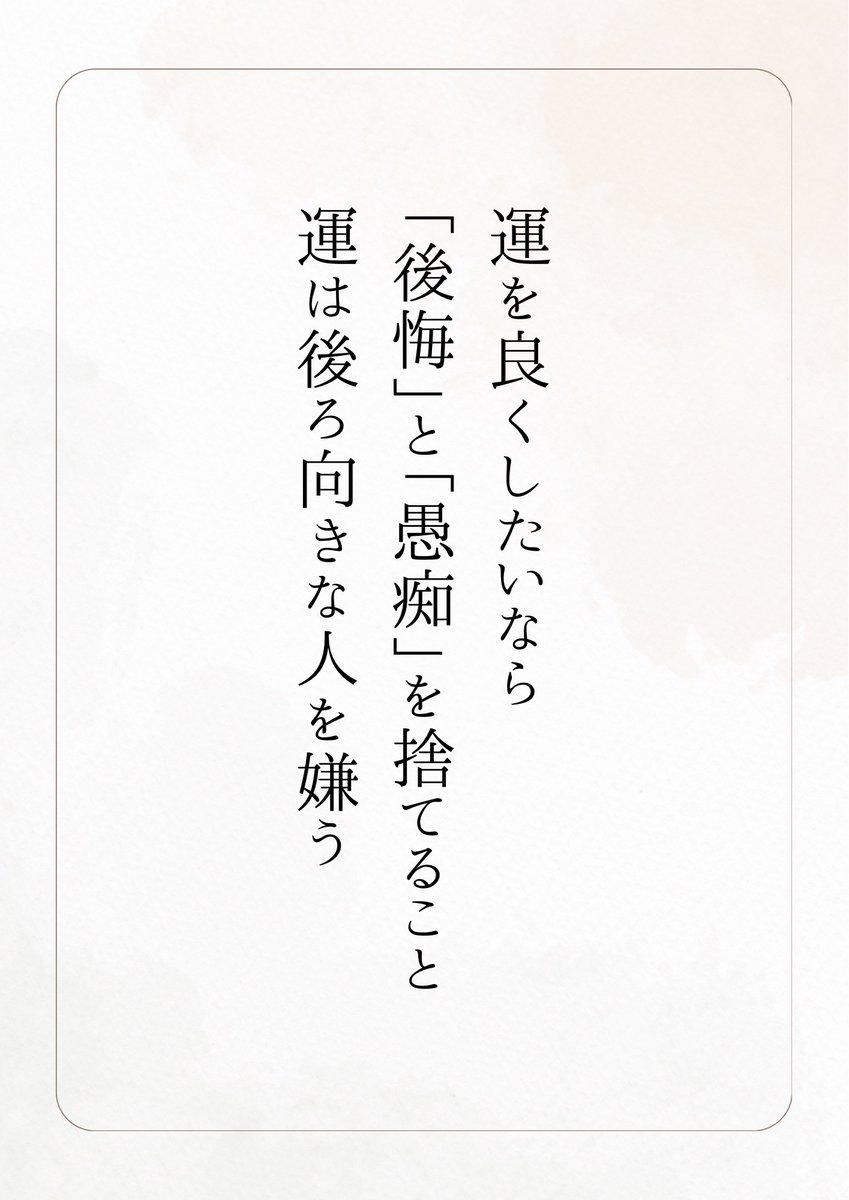 運を良くしたいなら
「後悔」と「愚痴」を捨てること
運は後ろ向きな人を嫌う